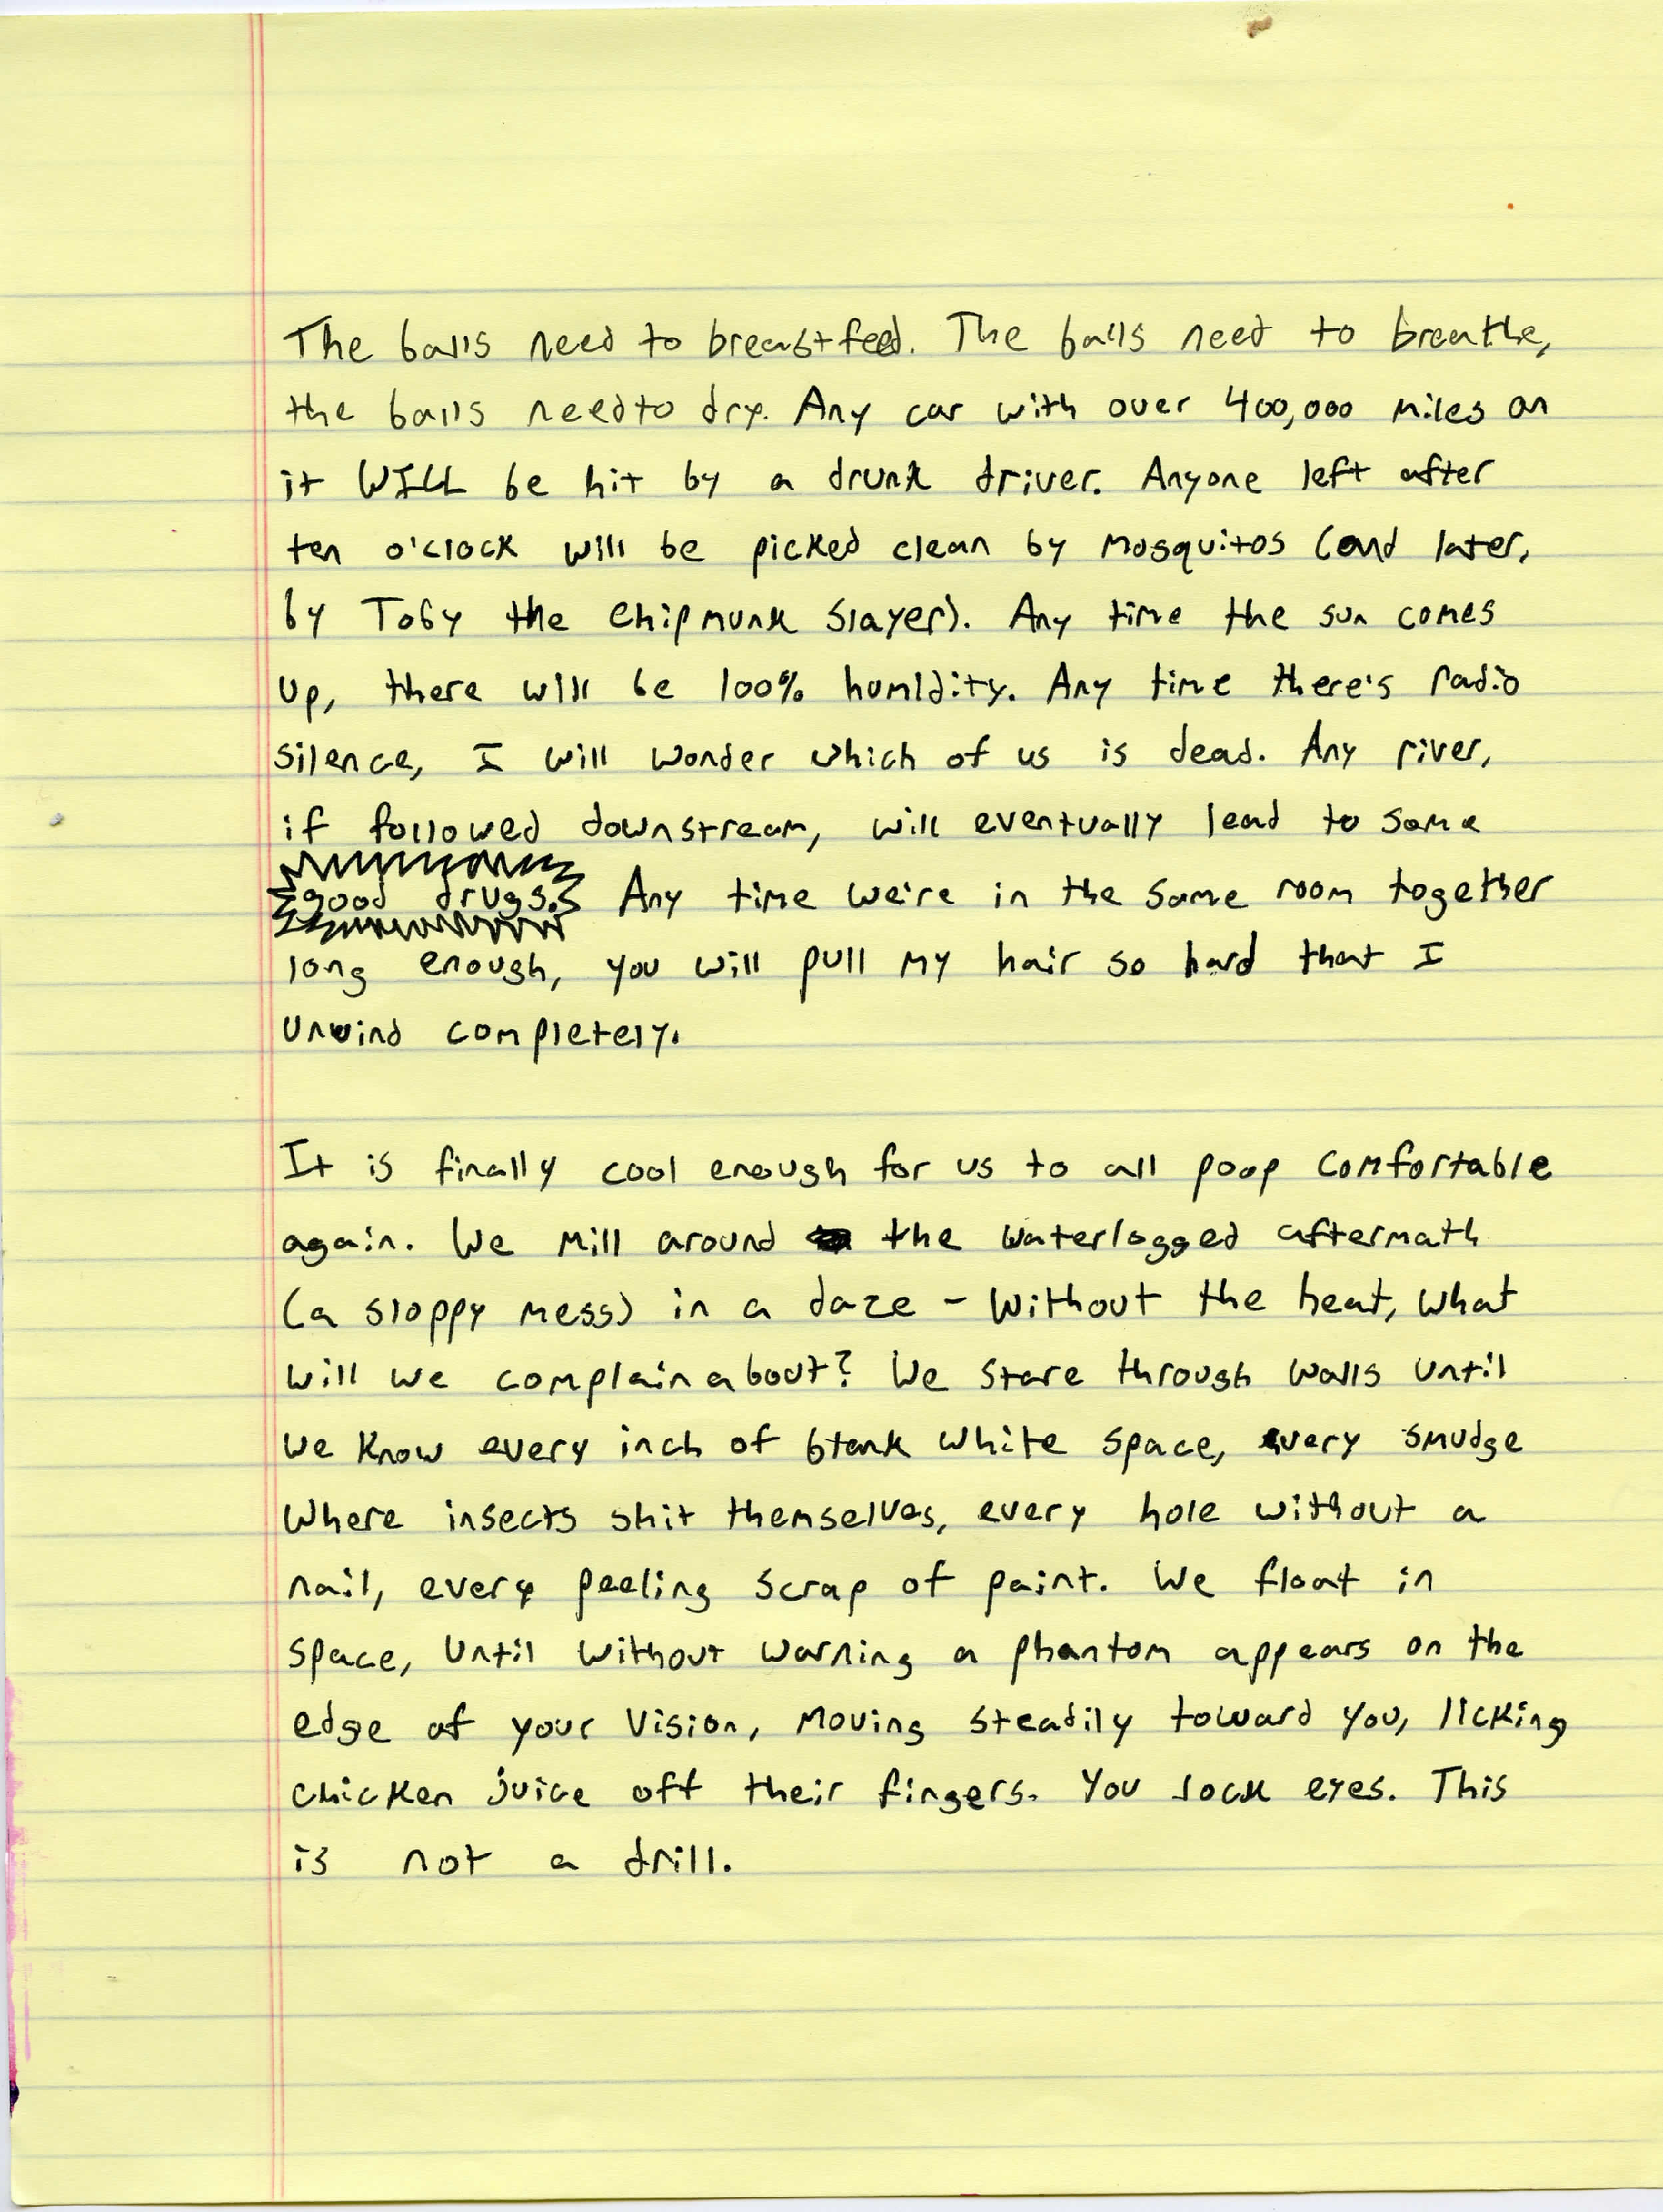 The balls need to breastfeed. The balls need to breathe,
the balls need to dry. Any car with over 400,000 miles on
it WILL be hit by a drunk driver. Anyone left after
ten o'clock will be picked clean by mosquitos (and later,
by Toby the Chipmunk Slayer). Any time the sun comes
up, there will be 100% humidity. Any time there's radio
silence, I will wonder which of us is dead. Any river,
if followed downstream, will eventually lead to some
good drugs. Any time we're in the same room together
long enough, you will pull my hair so hard that I
unwind completely.
It is finally cool enough for us to all poop comfortable
again. We mill around the waterlogged aftermath
(a sloppy mess) in a daze - without the heat, what
will we complain about? We stare through walls until
we know every inch of blank white space, every smudge
where insects shit themselves, every hole without a
nail, every peeling scrap of paint. We float in
space, until without warning a phantom appears on the
edge of your vision, moving steadily toward you, licking
chicken juice off their fingers. You lock eyes. This
is not a drill.